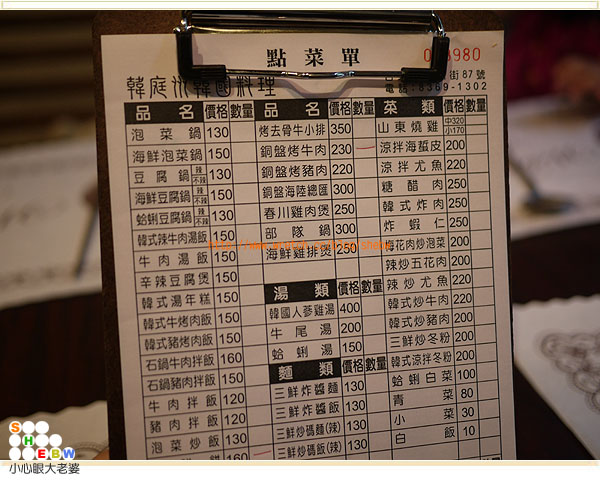 點菜單
3980
韓庭州韓國料理
街87號
電話:8369-1302
品名 價格 數量
泡菜鍋 130
海鮮泡菜鍋 150
豆腐鍋 辣 不辣 130
海鮮豆腐鍋 辣 不辣 150
蛤蜊豆腐鍋 辣 不辣 130
韓式辣牛肉湯飯 150
牛肉湯飯 150
辛辣豆腐煲 150
韓式湯年糕 150
韓式牛烤肉飯 150
韓式豬烤肉飯 150
石鍋牛肉拌飯 160
石鍋豬肉拌飯 150
牛肉拌飯 120
豬肉拌飯 120
泡菜炒飯 130
餅 160
品名 價格 數量
烤去骨牛小排 350
銅盤烤牛肉 230
銅盤烤豬肉 220
銅盤海陸總匯 300
春川雞肉煲 250
部隊鍋 300
海鮮雞排煲 250
湯類 價格 數量
韓國人蔘雞湯 400
牛尾湯 200
蛤蜊湯 150
麵類 價格 數量
三鮮炸醬麵 130
三鮮炸醬飯 130
三鮮炒碼麵(辣) 130
三鮮炒碼飯(辣) 130
菜類 價格 數量
山東燒雞 中320 小170
涼拌海蜇皮 200
涼拌尤魚 220
糖醋肉 250
韓式炸肉 250
炸蝦仁 250
五花肉炒泡菜 200
辣炒五花肉 200
辣炒尤魚 220
韓式炒牛肉 220
韓式炒豬肉 200
三鮮炒冬粉 200
韓式涼拌冬粉 200
蛤蜊白菜 100
青菜 80
小菜 30
白飯 10
SHEBW
小心眼大老婆